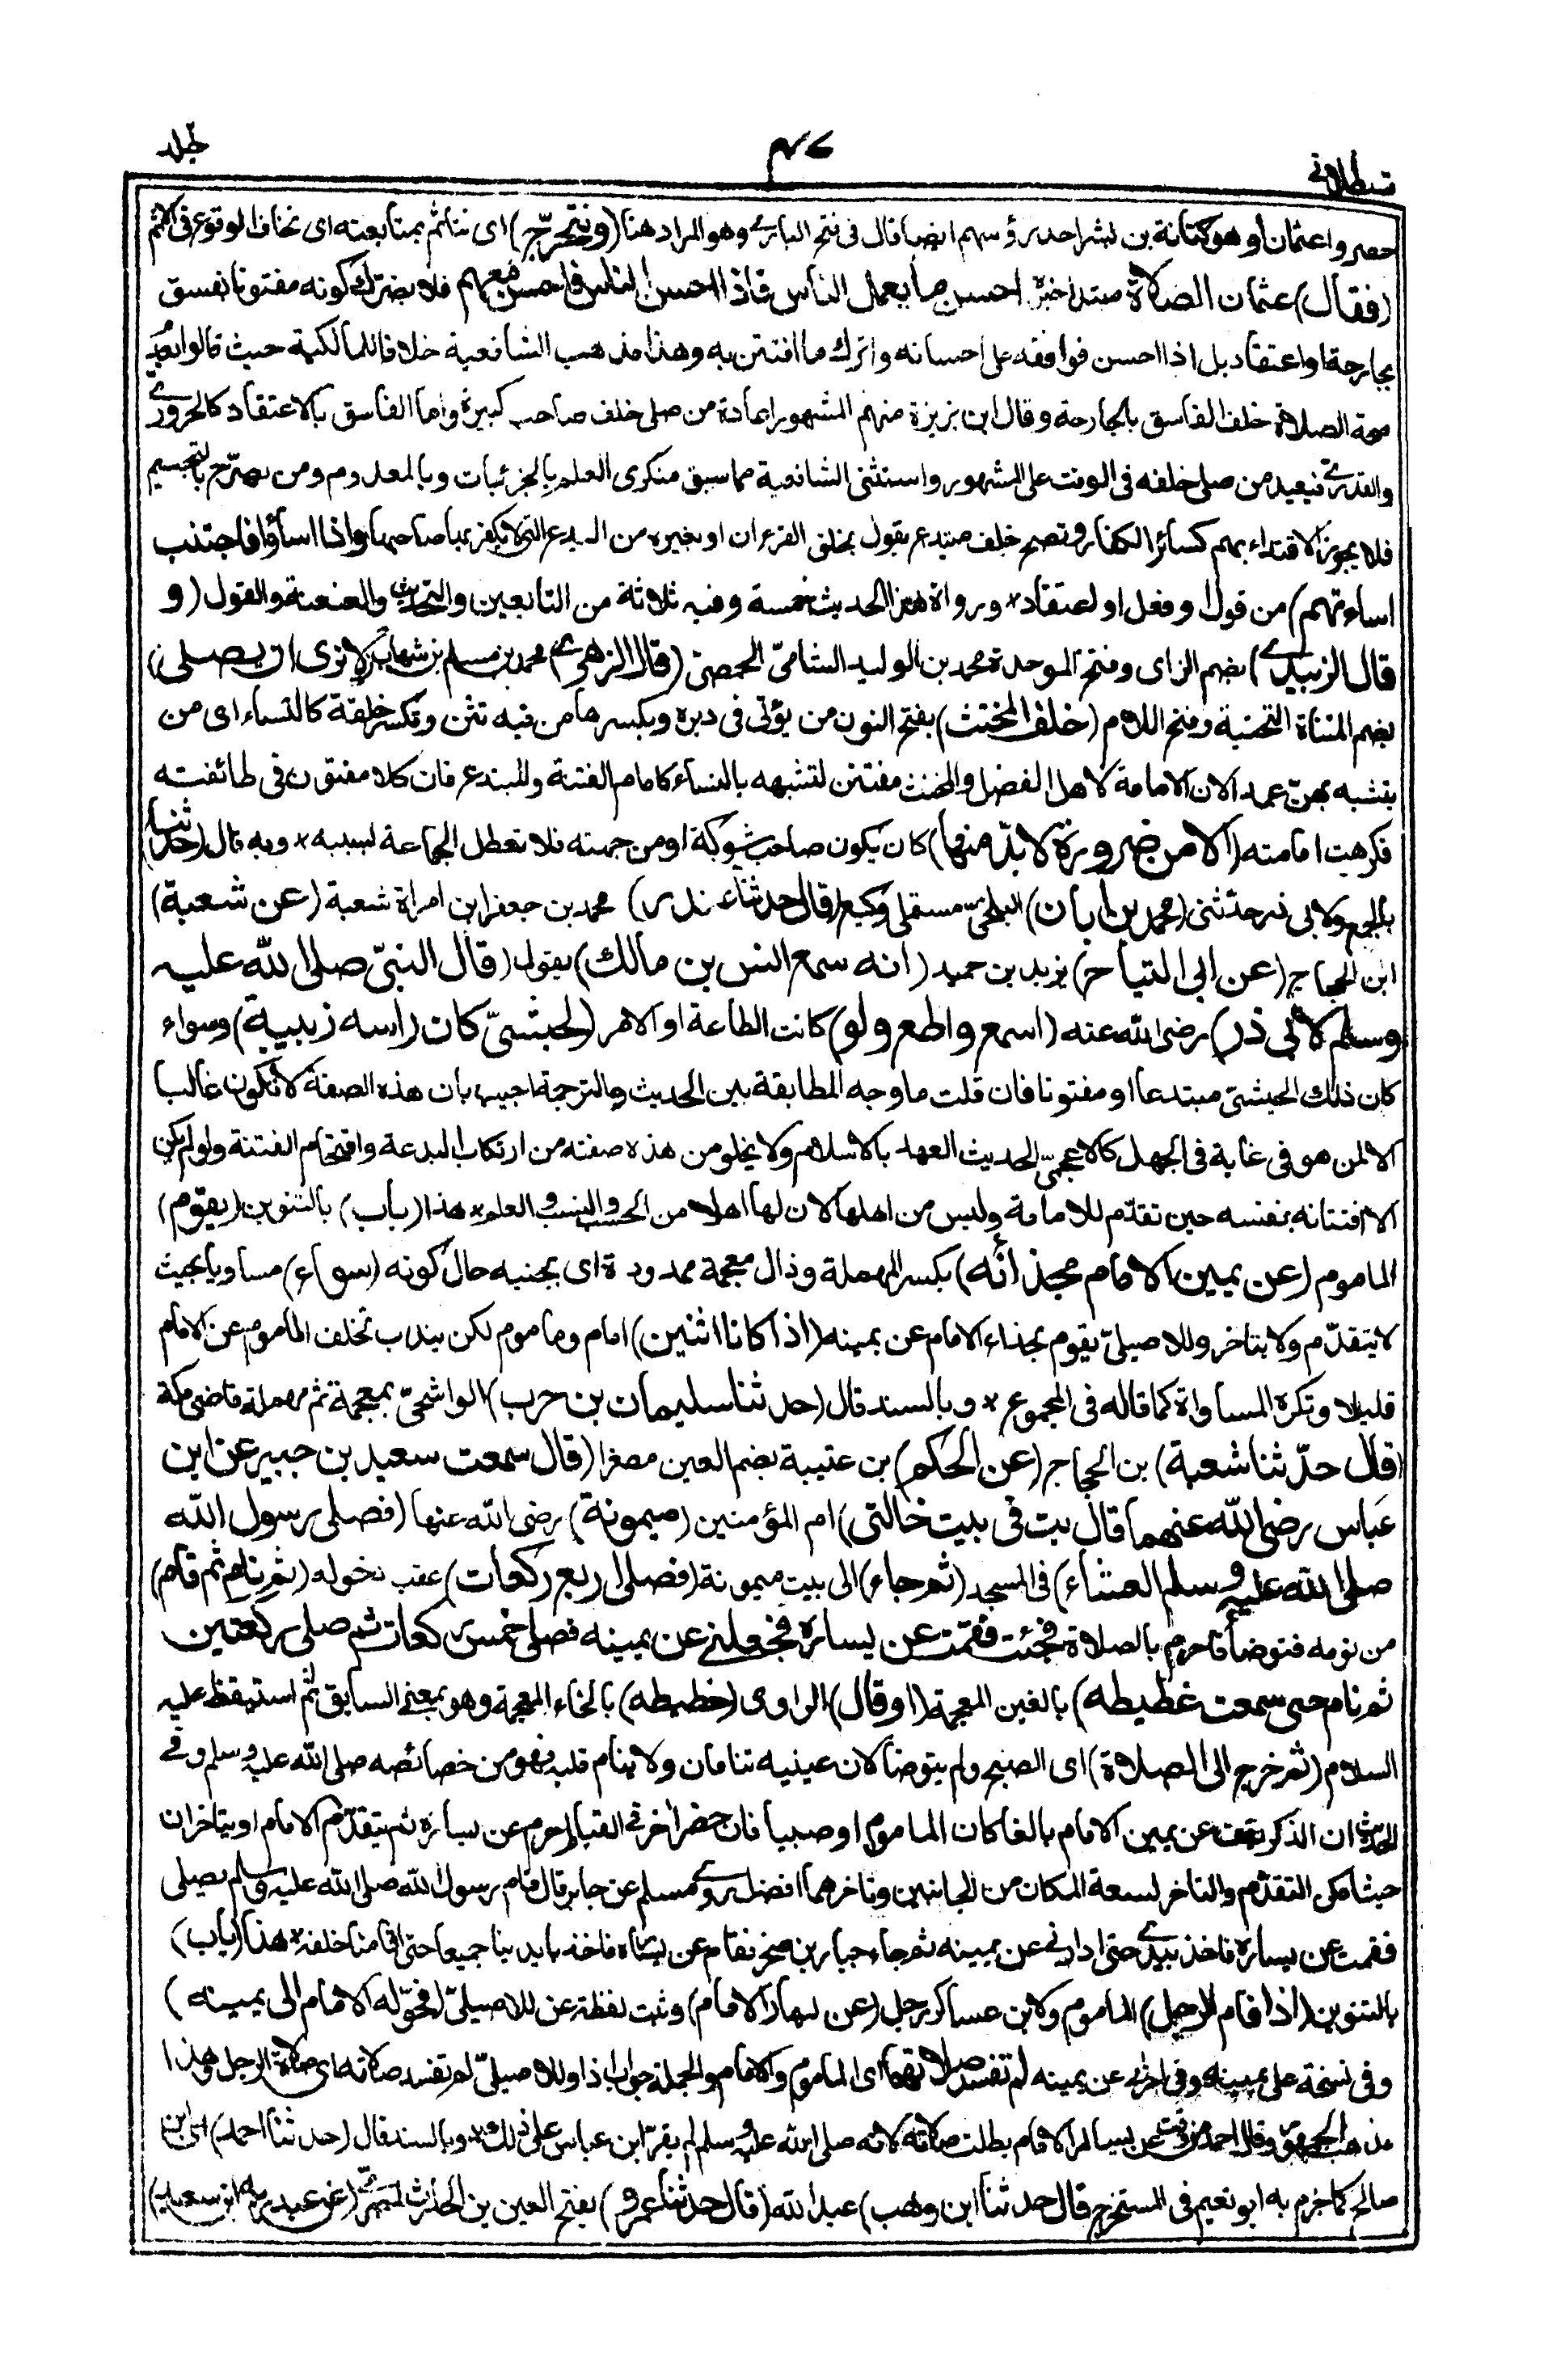 قسطلانی ٤٧ جلد
حصروا عثمان او هو كنانة بن بشر احد رؤسهم ايضا قال فى فتح البارى وهو المراد هنا (ونتحرّج) اى نتاثم بمتابعته اى نخاف الوقوع فى الاثم
(فقال) عثمان الصلاة مبتدا خبره احسن ما يعمل الناس فاذا احسن الناس فاحسن معهم فلا يضرّك كونه مفتونا بفسق
بجارحة او اعتقاد بل اذا احسن فوافقه على احسانه واترك ما افتتن به وهذا مذهب الشافعية خلافا للمالكية حيث قالوا بعدم
صحة الصلاة خلف الفاسق بالجارحة وقال ابن بزيزة منهم المشهور اعادة من صلى خلف صاحب كبيرة واما الفاسق بالاعتقاد كالحرورى
والقدرى فيعيد من صلى خلفه فى الوقت على المشهور واستثنى الشافعية مما سبق منكرى العلم بالجزئيات وبالمعدوم ومن يصرّح بالتجسيم
فلا يجوز الاقتداء بهم كسائر الكفار وتصح خلف مبتدع يقول بخلق القرءان او بغيره من البدع التى لا يكفر بها صاحبها واذا اساؤا فاجتنب
اساءتهم) من قول او فعل او اعتقاد * ورواة هذا الحديث خمسة وفيه ثلاثة من التابعين والتحديث والعنعنة والقول (و
قال الزبيدى) بضم الزاى وفتح الموحدة محمد بن الوليد الشامىّ الحمصىّ (قال الزهرى) محمد بن مسلم بن شهاب (لا نرى ان يصلى)
بضم المثناة التحتية وفتح اللام (خلف المخنث) بفتح النون من يؤتى فى دبره وبكسرها من فيه تثن وتكسر خلقة كالنساء اى من
يتشبه بهنّ عمدا لان الامامة لاهل الفضل والمخنث مفتتن لتشبهه بالنساء كامام الفتنة والمبتدع فان كلا مفتون فى طائفته
فكرهت امامته (الا من ضرورة لا بدّ منها) كان يكون صاحب شوكة او من جهته فلا تعطل الجماعة لسببه * وبه قال (حدّثنا)
بالجمع ولابى ذر حدّثنى (محمد بن ابان) البلخىّ مستملى وكيع (قال حدثنا غندر) محمد بن جعفر ابن امراة شعبة (عن شعبة)
ابن الحجاج (عن ابى التياح) يزيد بن حميد (انه سمع انس بن مالك) يقول (قال النبىّ صلى الله عليه
وسلم لابى ذر) رضى الله عنه (اسمع واطع ولو) كانت الطاعة او الامر (لحبشىّ كان راسه زبيبة) وسواء
كان ذلك الحبشىّ مبتدعا او مفتونا فان قلت ما وجه المطابقة بين الحديث والترجمة اجيب بان هذه الصفة لا تكون غالبا
الا لمن هو فى غاية فى الجهل كالاعجمىّ الحديث العهد بالاسلام ولا يخلو من هذه صفته من ارتكاب البدعة واقتحام الفتنة ولو لم يكن
الا افتتانه بنفسه حين تقدّم للامامة وليس من اهلها لان لها اهلا من الحسب والنسب والعلم * هذا (باب) بالتنوين (يقوم)
الماموم (عن يمين الامام بحذائه) بكسر المهملة وذال معجمة ممدودة اى بجنبه حال كونه (سواء) مساويا بحيث
لا يتقدّم ولا يتاخر وللاصيلىّ يقوم بحذاء الامام عن يمينه (اذا كانا اثنين) امام وماموم لكن يندب تخلف الماموم عن الامام
قليلا وتكره المساواة كما قاله فى المجموع * وبالسند قال (حدثنا سليمان بن حرب) الواشحىّ بمعجمة ثم مهملة قاضى مكة
(قال حدّثنا شعبة) بن الحجاج (عن الحكم) بن عتيبة بضم العين مصغرا (قال سمعت سعيد بن جبير عن ابن
عباس رضى الله عنهما قال بت فى بيت خالتى) ام المؤمنين (ميمونة) رضى الله عنها (فصلى رسول الله
صلى الله عليه وسلم العشاء) فى المسجد (ثم جاء) الى بيت ميمونة (فصلى اربع ركعات) عقب دخوله (ثم نام ثم قام)
من نومه فتوضأ فاحرم بالصلاة فجئت فقمت عن يساره فجعلنى عن يمينه فصلى خمس ركعات ثم صلى ركعتين
ثم نام حتى سمعت غطيطه) بالغين المعجمة (او قال) الراوى (خطيطه) بالخاء المعجمة وهو بمعنى السابق ثم استيقظ عليه
السلام (ثم خرج الى الصلاة) اى الصبح ولم يتوضا لان عينيه تنامان ولا ينام قلبه فهو من خصائصه صلى الله عليه وسلم وفى
الحديث ان الذكر يقف عن يمين الامام بالغا كان الماموم او صبيا فان حضر اخر فى القيام احرم عن يساره ثم يتقدّم الامام او يتاخران
حيث امكن التقدّم والتاخر لسعة المكان من الجانبين وتاخرهما افضل روى مسلم عن جابر قال قام رسول الله صلى الله عليه وسلم يصلى
فقمت عن يساره فاخذ بيدى حتى ادارنى عن يمينه ثم جاء جبار بن صخر فقام عن يساره فاخذ بايدينا جميعا حتى اقامنا خلفه * هذا (باب)
بالتنوين (اذا قام الرجل) الماموم ولابن عساكر رجل (عن يسار الامام) وثبت لفظة عن للاصيلىّ (فحوّله الامام الى يمينه)
وفى نسخة على يمينه وفى اخرى عن يمينه لم تفسد صلاتهما اى الماموم والامام والجملة جواب اذا وللاصيلىّ لم تفسد صلاته اى صلاة الرجل وهذا
مذهب الجمهور وقال احمد من وقف عن يسار الامام بطلت صلاته لانه صلى الله عليه وسلم لم يقرّ ابن عباس على ذلك * وبالسند قال (حدثنا احمد) اى ابن
صالح كما جزم به ابو نعيم فى المستخرج قال حدثنا ابن وهب) عبد الله (قال حدثنا عمرو) بفتح العين بن الحارث المصرىّ (عن عبد ربه ابن سعيد)